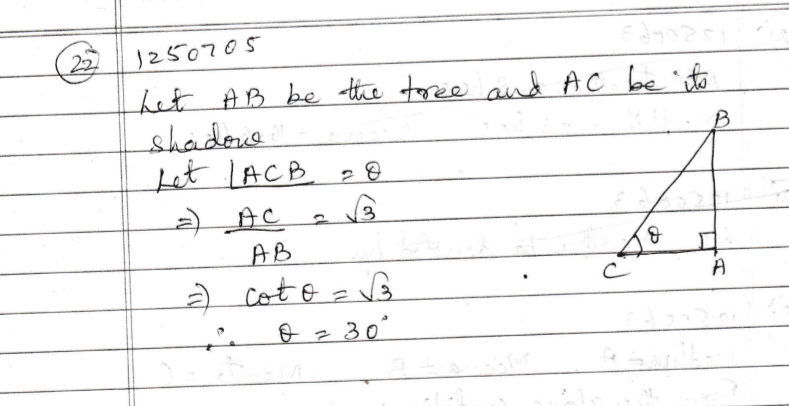 22 1250705
Let AB be the tree and AC be its
shadow
Let ∠ACB = θ
=) AC/AB = √3
=) cot θ = √3
∴ θ = 30°
B
θ
C
A